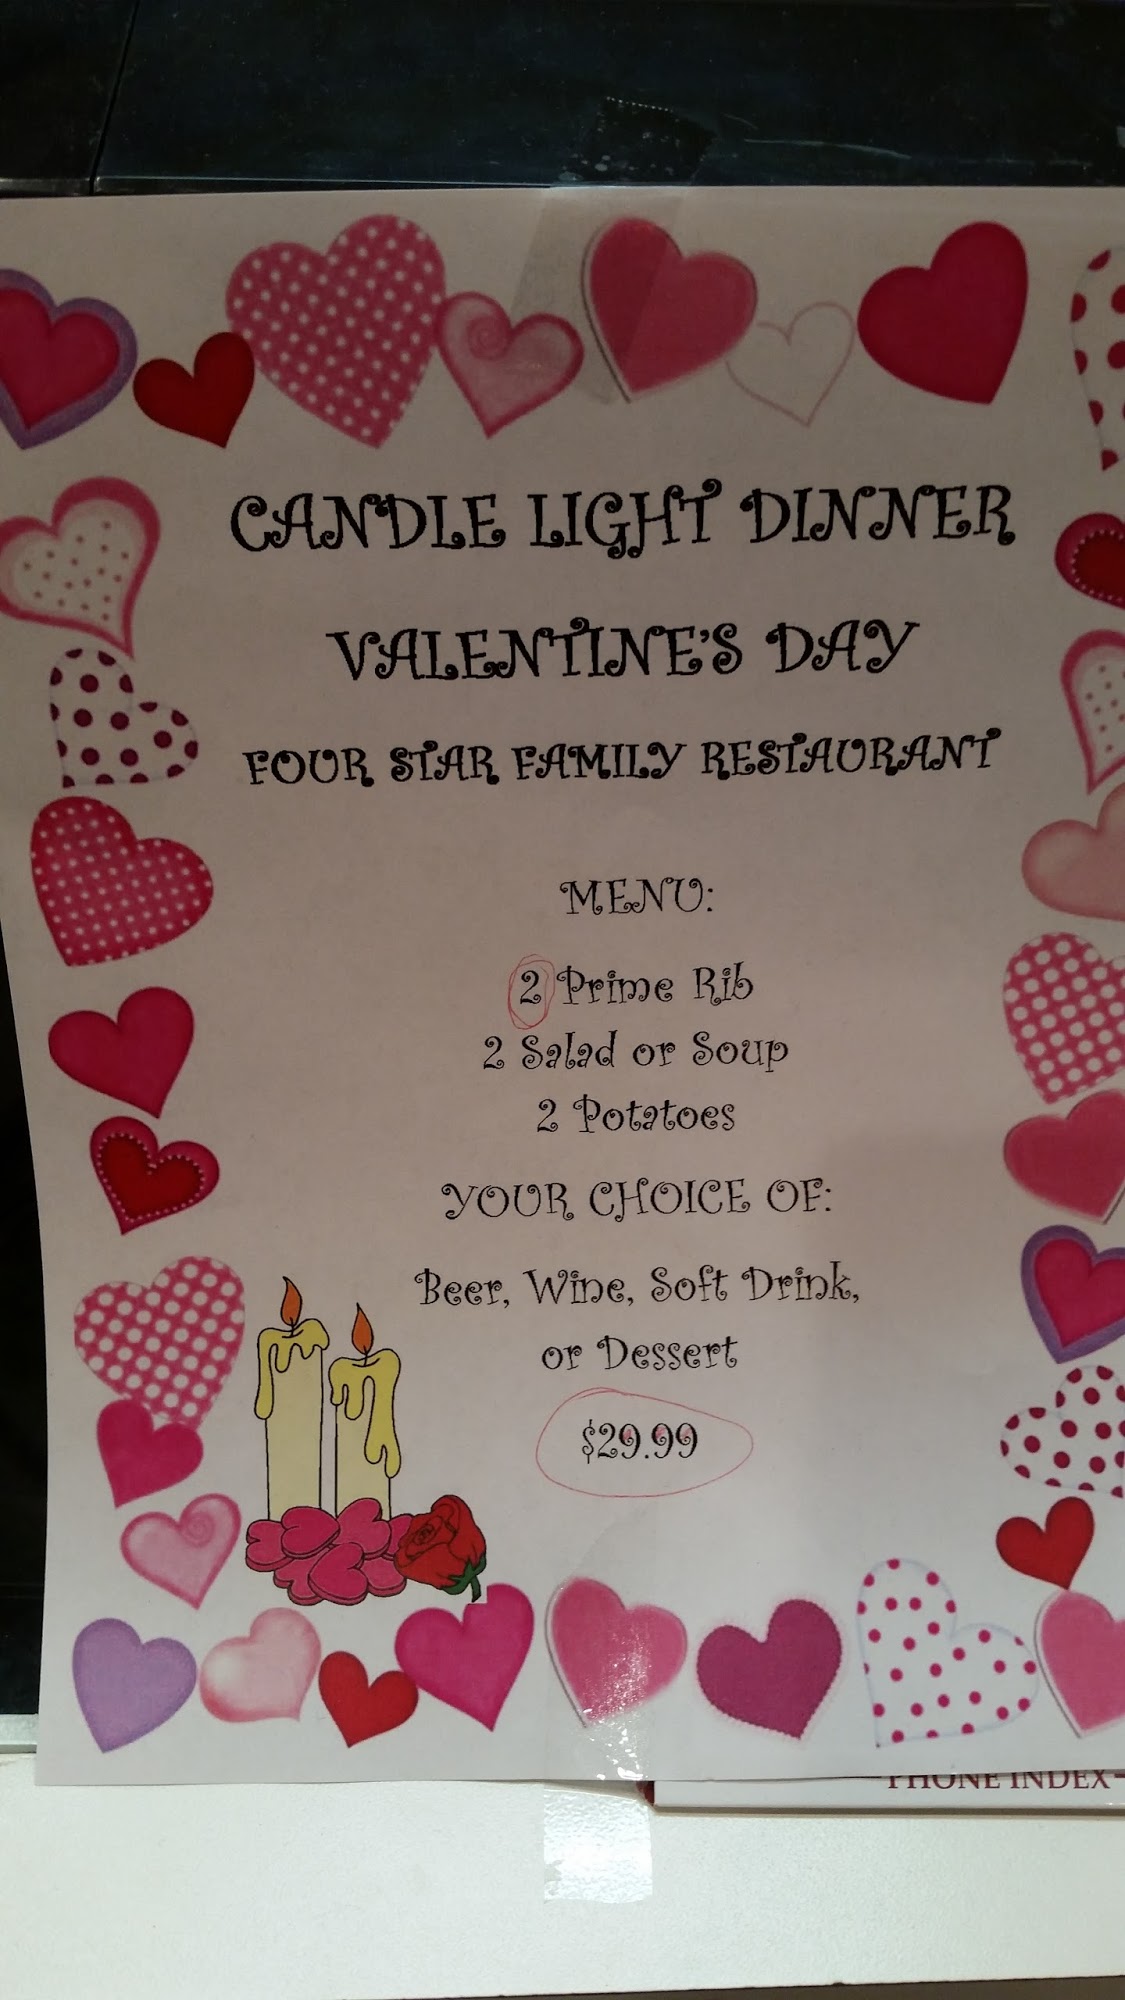 CANDLE LIGHT DINNER
VALENTINE'S DAY
FOUR STAR FAMILY RESTAURANT
MENU:
2 Prime Rib
2 Salad or Soup
2 Potatoes
YOUR CHOICE OF:
Beer, Wine, Soft Drink,
or Dessert
$29.99
PHONE INDEX